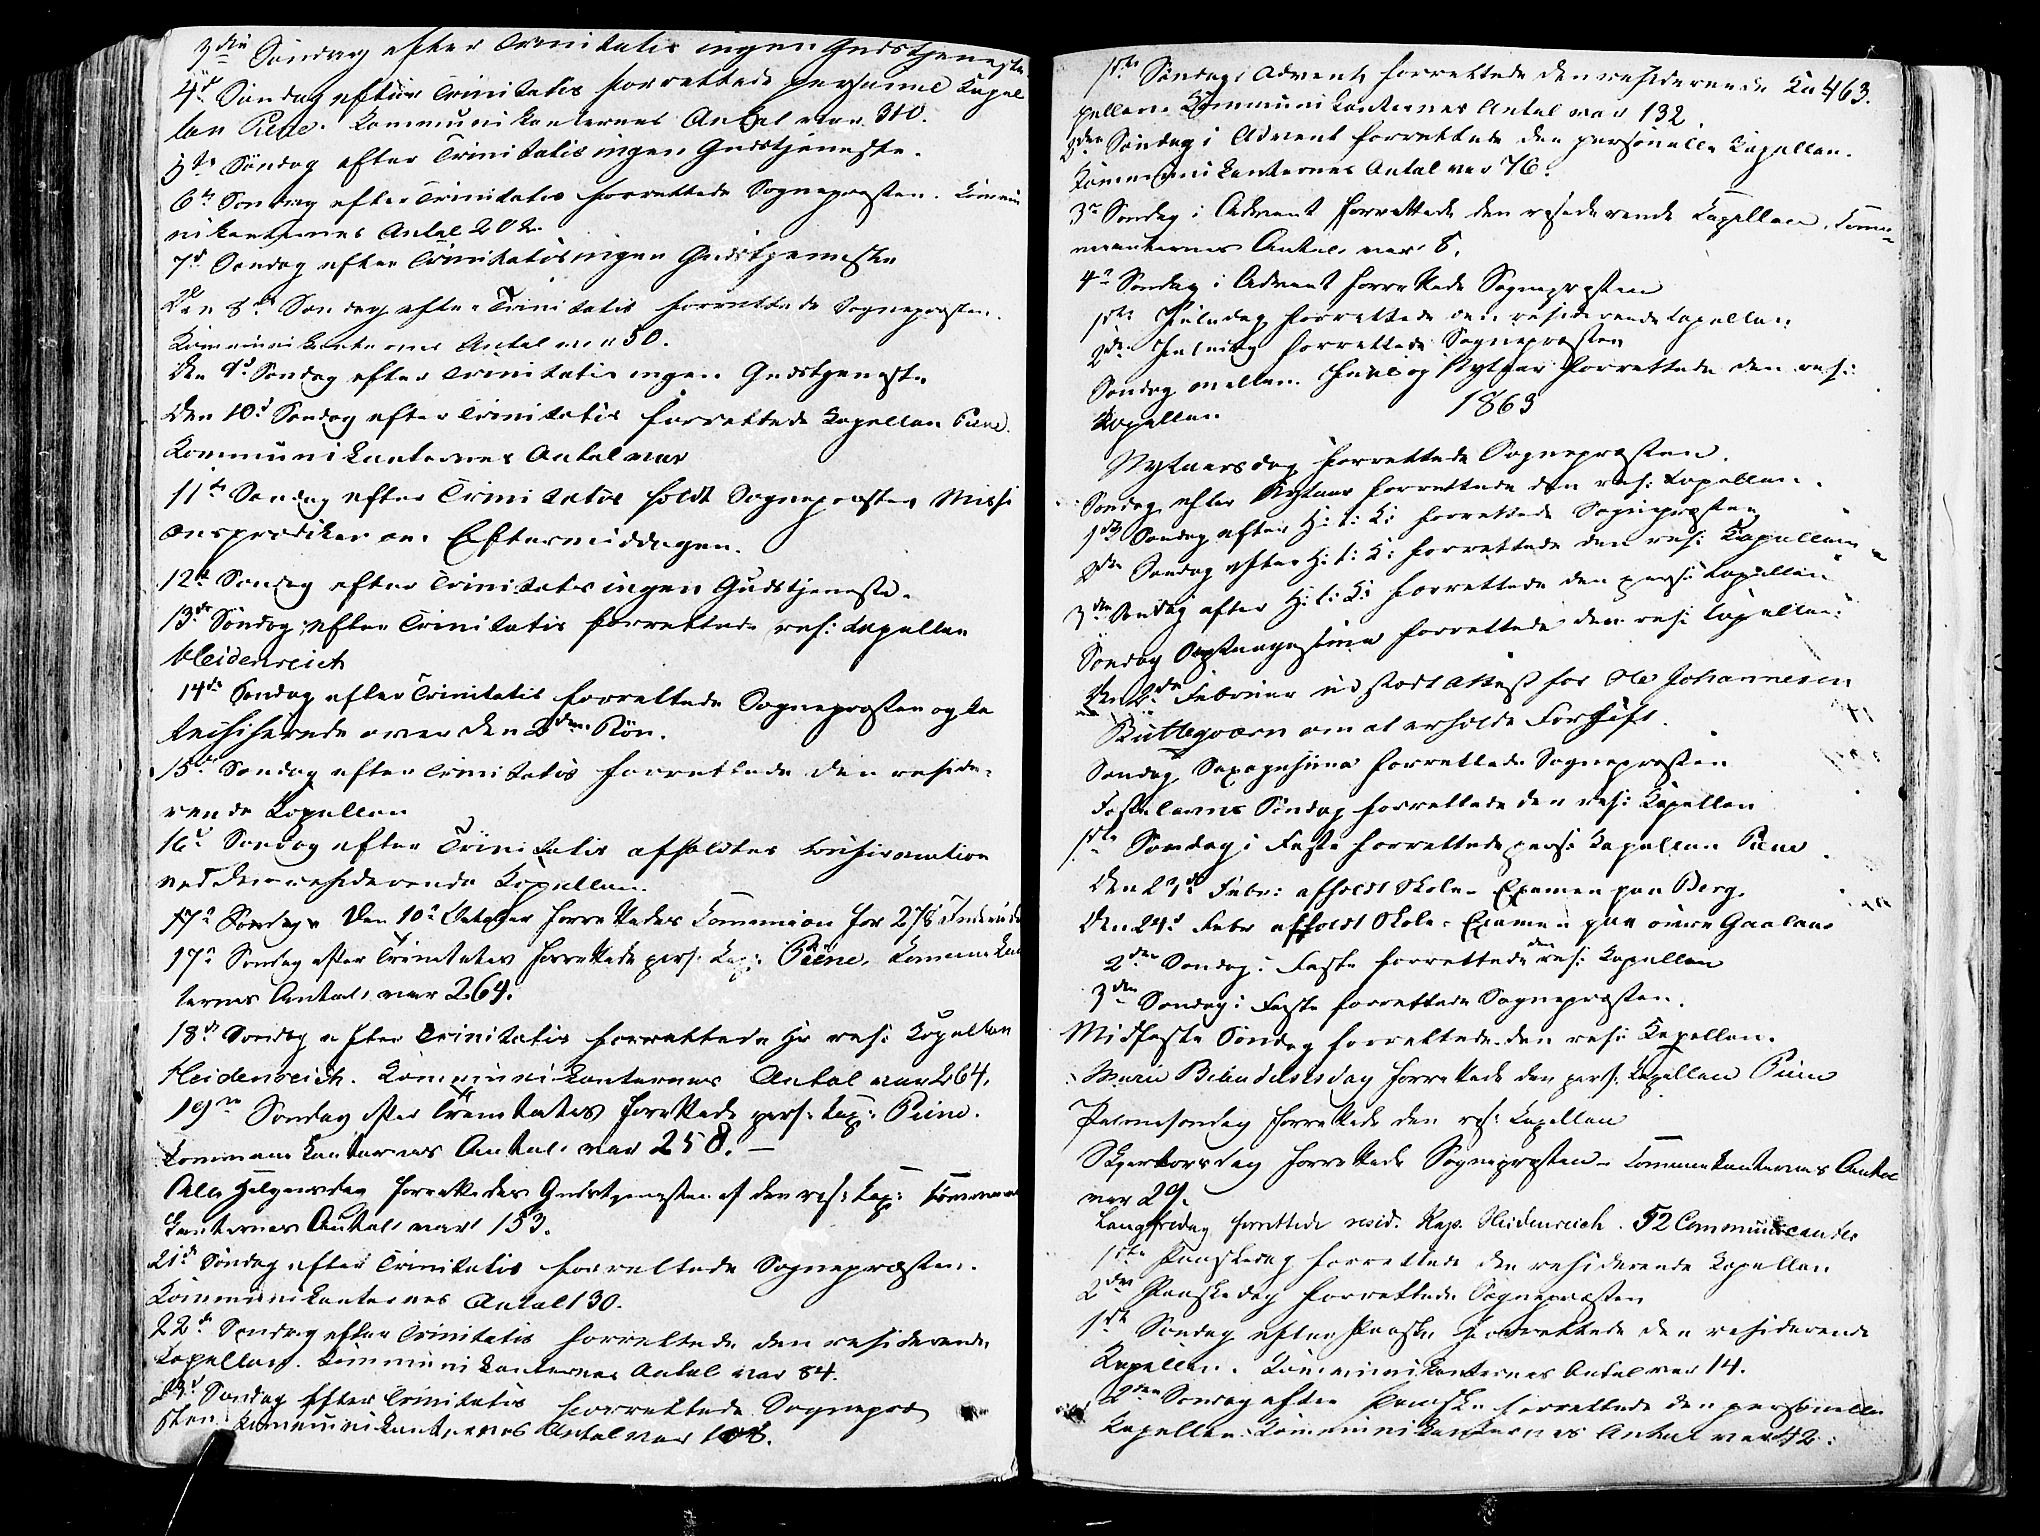 3die Søndag efter Trinitatis ingen Gudstjeneste
4d Søndag efter Trinitatis forrettede personel Kapel
lan Piene. Kommunikanternes Antal var 310.
5te Søndag efter Trinitatis ingen Gudstjeneste.
6te Søndag efter Trinitatis forrettede Sognepræsten. Kommu
nikanternes Antal 202.
7d Søndag efter Trinitatis ingen Gudstjeneste
Den 8de Søndag efter Trinitatis forrettede Sognepræsten.
Kommunikanternes Antal var 50.
Den 9d Søndag efter Trinitatis ingen Gudstjeneste
Den 10d Søndag efter Trinitatis forrettede Kapellan Piene.
Kommunikanternes Antal var
11te Søndag efter Trinitatis holdt Sognepræsten Missi
onsprædiken om Eftermiddagen.
12te Søndag efter Trinitatis ingen Gudstjeneste.
13de Søndag efter Trinitatis forrettede res: Kapellan
Heidenreich
14de Søndag efter Trinitatis forrettede Sognepræsten og ka
techiserede over den 2den Bøn.
15de Søndag efter Trinitatis forrettede den reside-
rende Kapellan
16d Søndag efter Trinitatis afholdtes Confirmation
ved den residerende Kapellan.
17n Søndags Den 10n October forrettedes Communion for 278
17n Søndag efter Trinitates forrettede pers. Kap: Piene. Kommunikan
ternes Antal var 264.
18de Søndag efter Trinitatis forrettede Hr res: Kapellan
Heidenreich. Kommunikanternes Antal var 264.
19n Søndag efter Trinitates forrettede pers. Kap: Piene.
Communikanternes Antal var 258. —
Alle Helgensdag forrettedes Gudstjenesten af den res: Kap: Communi
kanternes Antal var 153.
21de Søndag efter Trinitatis forrettede Sognepræsten.
Kommunikanternes Antal 130.
22de Søndag efter Trinitatis forrettede den residerende
Kapellan. Kommunikanternes Antal var 84.
23d Søndag efter Trinitatis forrettede Sognepræ
sten. Kommunikanternes Antal var 108.
463.
1ste Søndag i Advent forrettede den residerende Ka
pellan. Kommunikanternes Antal var 132
2den Søndag i Advent forrettede den personelle Kapellan.
Kommunikanternes Antal var 76.
3n Søndag i Advent forrettede den residerende Kapellan. Commu-
nicanternes Antal var 8.
4n Søndag i Advent forrettede Sognepræsten
1ste Juledag forrettede den residerende Kapellan
2den Juledag forrettede Sognepræsten
Søndag mellem Juul og Nytaar forrettede den res:
Kapellan
1863
Nytaarsdag forrettede Sognepræsten.
Søndag efter Nytaar forrettede den res: Kapellan.
1ste Søndag efter H: t: K: forrettede Sognepræsten
2den Søndag efter H: t: K: forrettede den res: Kapellan
3den Søndag efter H: t: K: forrettede den pers: Kapellan
Søndag Septuagesima forrettede den res: Kapellan
Den 2den Februar udstedt Attest for Ole Johannesen
om at erholde Forgift.
Søndag Sexagesima forrettede Sognepræsten
Fastelavns Søndag forrettede den res: Kapellan
1ste Søndag i Faste forrettede pers: Kapellan Piene.
Den 21d Febr: afholdt Skole-Examen paa Berg.
Den 24d Febr afholdt Skole-Examen paa
2den Søndag i Faste forrettede den res: Kapellan
3den Søndag i Faste forrettede Sognepræsten.
Midfaste Søndag forrettede den res: Kapellan.
Marie Bebudelsesdag forrettede den pers: Kapellan Piene
Palmesøndag forrettede den res: Kapellan
Skjertorsdag forrettede Sognepræsten - Communikanternes Antal
var 29.
Langfredag forrettede resid. Kap. Heidenreich. 52 Communicanter
1ste Paaskedag forrettede den residerende Kapellan
2den Paaskedag forrettede Sognepræsten
1ste Søndag efter Paaske forrettede den residerende
Kapellan. Kommunikanternes Antal var 14.
2den Søndag efter Paaske forrettede den personelle
Kapellan. Kommunikanternes Antal var 42.